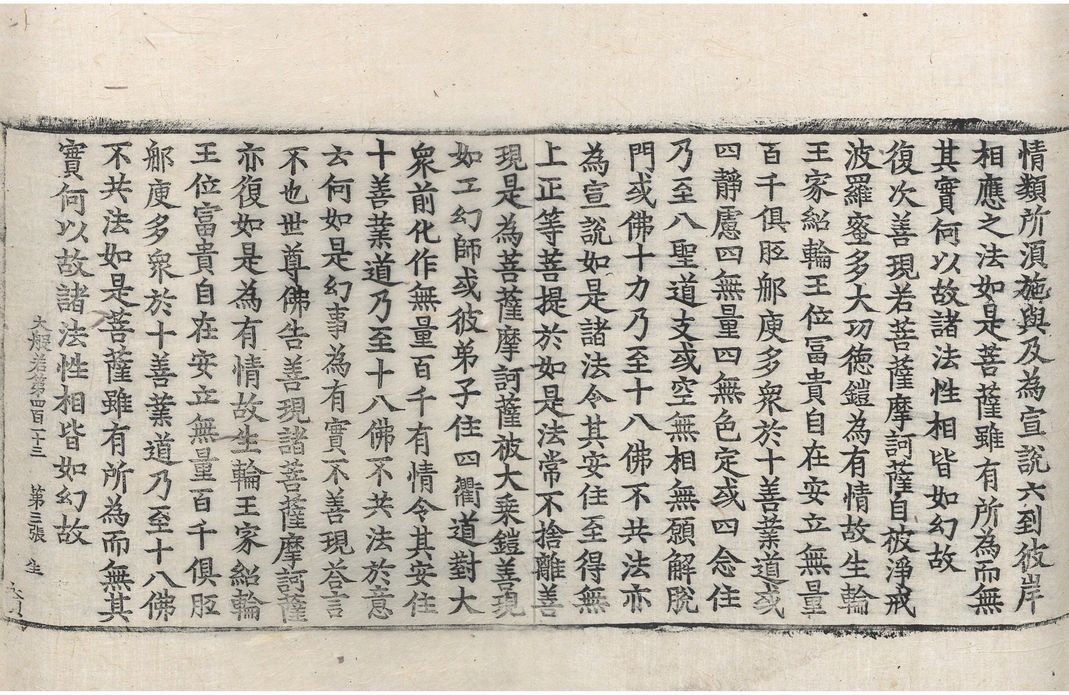 情類所湏施與及為宣說六到彼岸
相應之法如是菩薩雖有所為而無
其實何以故諸法性相皆如幻故
復次善現若菩薩摩訶薩自被淨戒
波羅蜜多大功德鎧為有情故生輪
王家紹輪王位冨貴自在安立無量
百千俱胝𨚗庾多衆於十善業道或
四靜慮四無量四無色定或四念住
乃至八聖道支或空無相無願解脫
門或佛十力乃至十八佛不共法亦
為宣說如是諸法令其安住至得無
上正等菩提於如是法常不捨離善
現是為菩薩摩訶薩被大乘鎧善現
如工幻師或彼弟子住四衢道對大
衆前化作無量百千有情令其安住
十善業道乃至十八佛不共法於意
云何如是幻事為有實不善現荅言
不也世尊佛告善現諸菩薩摩訶薩
亦復如是為有情故生輪王家紹輪
王位富貴自在安立無量百千俱胝
𨚗庾多衆於十善業道乃至十八佛
不共法如是菩薩雖有所為而無其
實何以故諸法性相皆如幻故
大般若第四百一十三 第三張 生